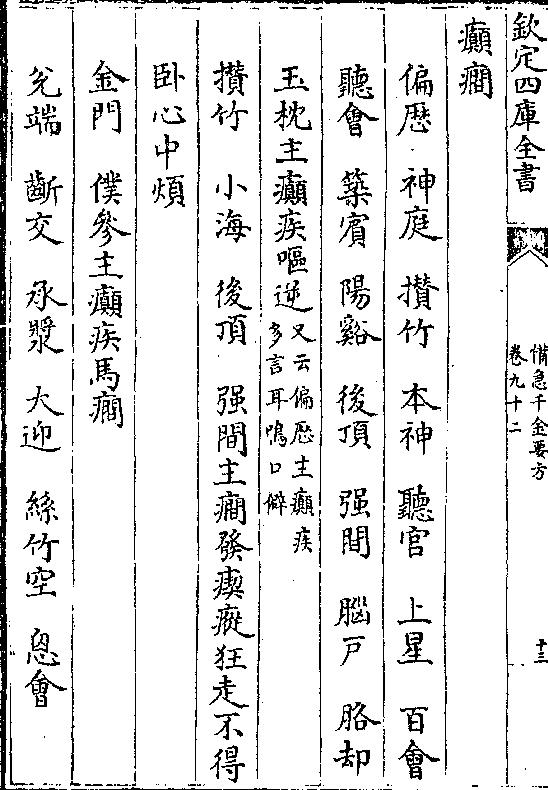 欽定四庫全書
備急千金要方
卷九十二
十三
癲癇
偏歴 神庭 攅竹 本神 聽官 上星 百會
聽會 築賓 陽谿 後頂 强間 腦戸 胳却
玉枕主癲疾嘔逆又云偏歴主癲疾
多言耳鳴口僻
攅竹 小海 後頂 强間主癇發瘈瘲狂走不得
卧心中煩
金門 僕參主癲疾馬癇
兊端 齗交 承漿 大迎 絲竹空 囟會